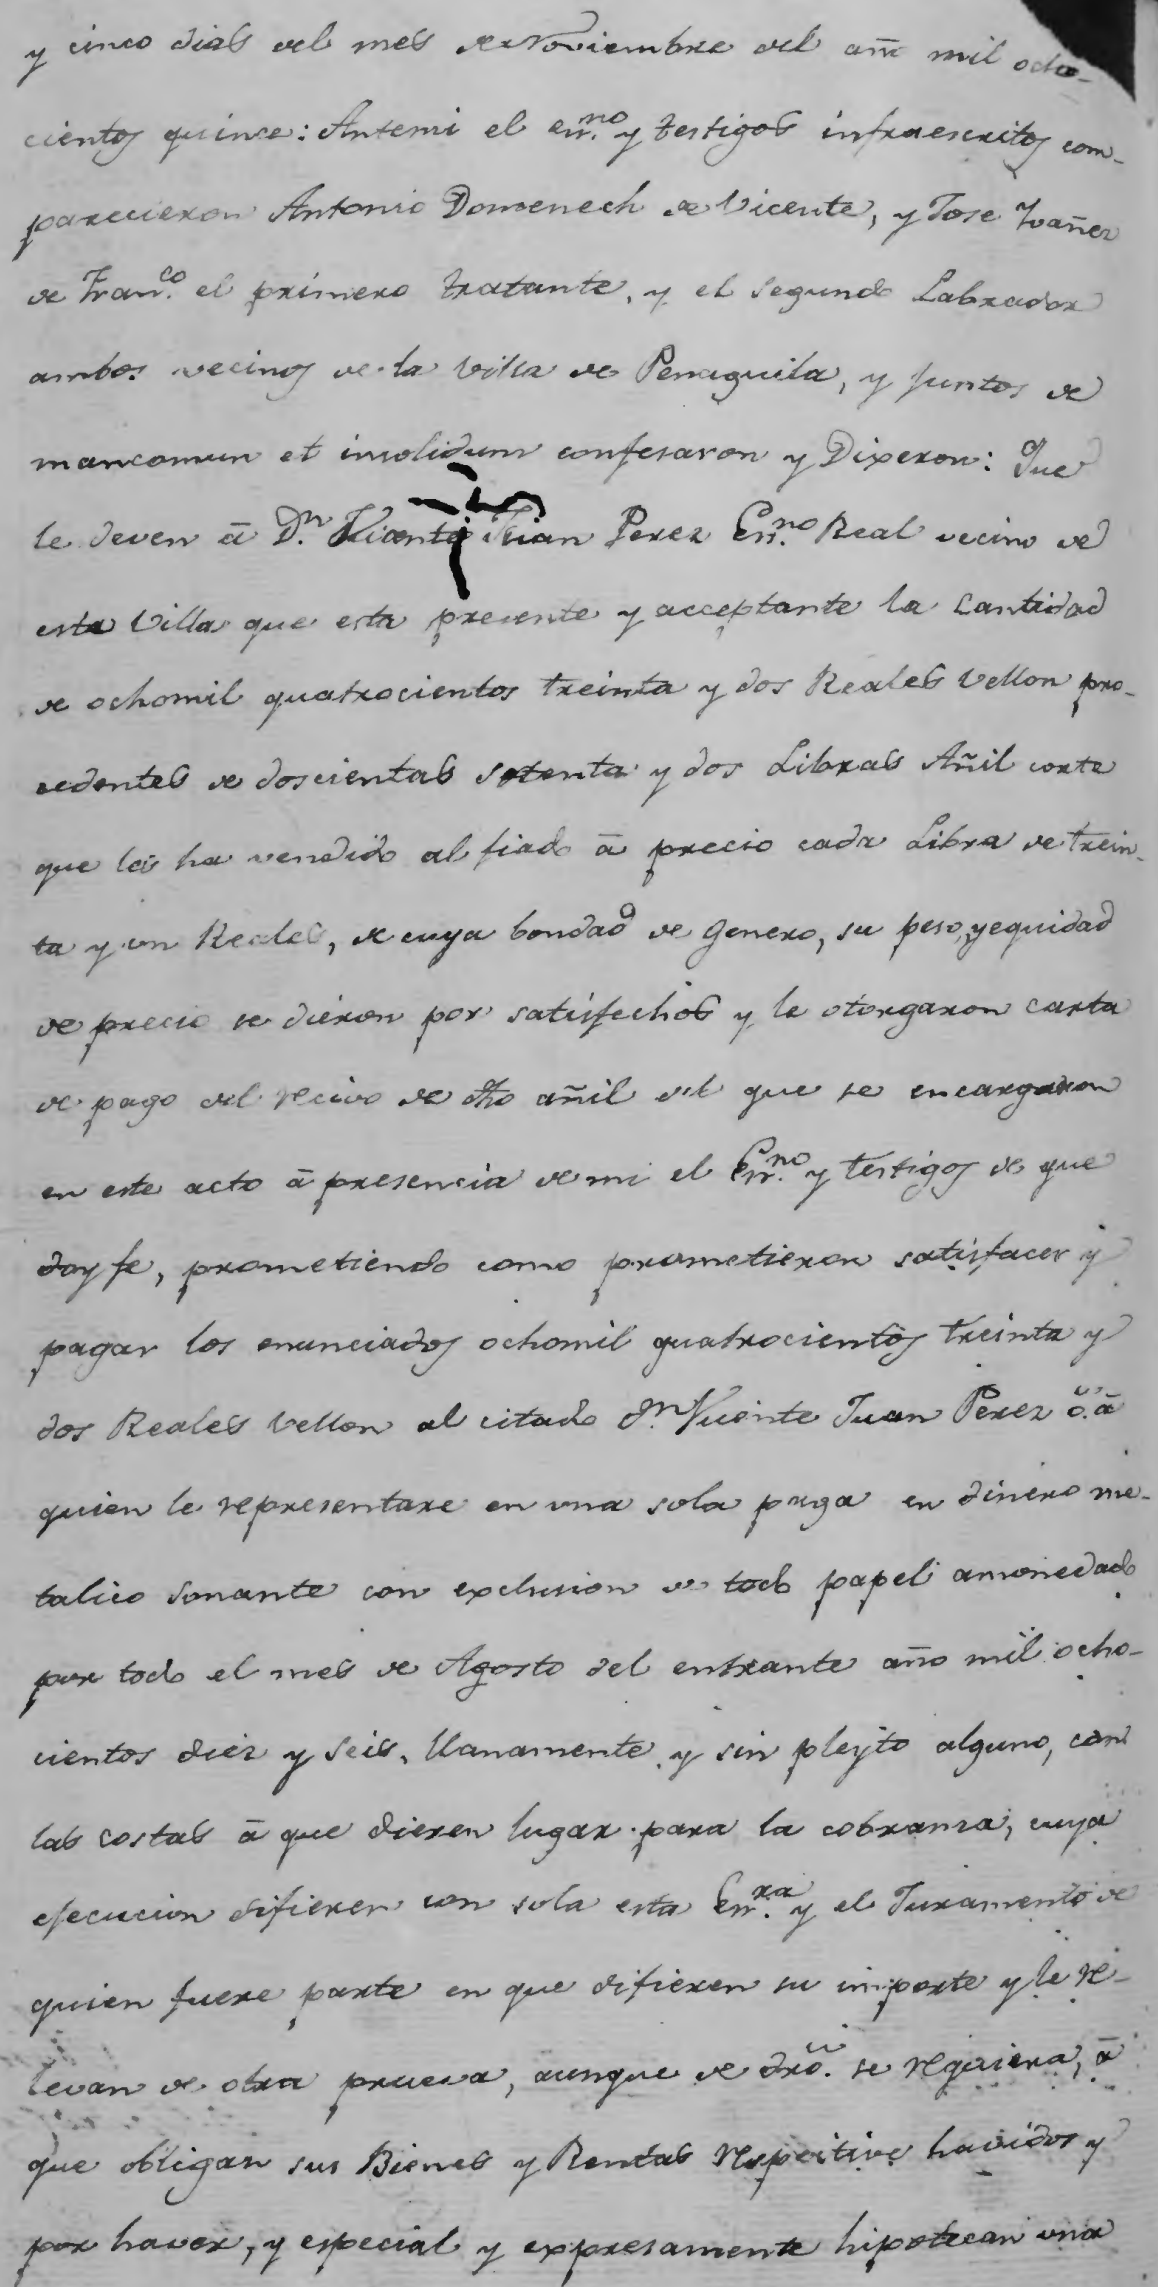 y cinco dias del mes de Noviembre del añ mil ocho-
cientos quinse: Antemi el esn.no y testigos infraescritos com-
parecieron Antonio Domenech de Vicente, y Jose Ivañez
de Fran.co el primero tratante, y el segundo Labrador
ambos vecinos de la Villa de Penaguila, y juntos de
mancomun et insolidum confesaron y Dixeron: Que
le deven á D.n Vicente Juan Perez Esn.no Real vecino de
esta Villa que esta presente y acceptante la Cantidad
de ochomil quatrocientos treinta y dos Reales Vellon pro-
cedentes de doscientas setenta y dos Libras Añil corte
que les ha vendido al fiado á precio cada Libra de trein-
ta y un Reales, de cuya bondad de genero, su peso, y equidad
de precio se dieron por satisfechos y le otorgaron carta
de pago del recivo de dho añil del que se encargaron
en este acto á presencia de mi el Esn.no y testigos de que
doy fe, prometiendo como prometieron satisfacer y
pagar los enunciados ochomil quatrocientos treinta y
dos Reales Vellon al citado D.n Vicente Juan Perez ó á
quien le representare en una sola paga en dinero me-
talico sonante con exclusion de todo papel amonedado
por todo el mes de Agosto del entrante año mil ocho-
cientos diez y seis, llanamente y sin pleyto alguno, con
las costas á que dieren lugar para la cobransa, cuya
ejecucion difieren con sola esta Esn.ra y el Juramento de
quien fuere parte en que difieren su importe y le re-
levan de otra prueva, aunque de dro. se requiera, á
que obligan sus Bienes y Rentas respective havidos y
por haver, y especial y expresamente hipotecan una